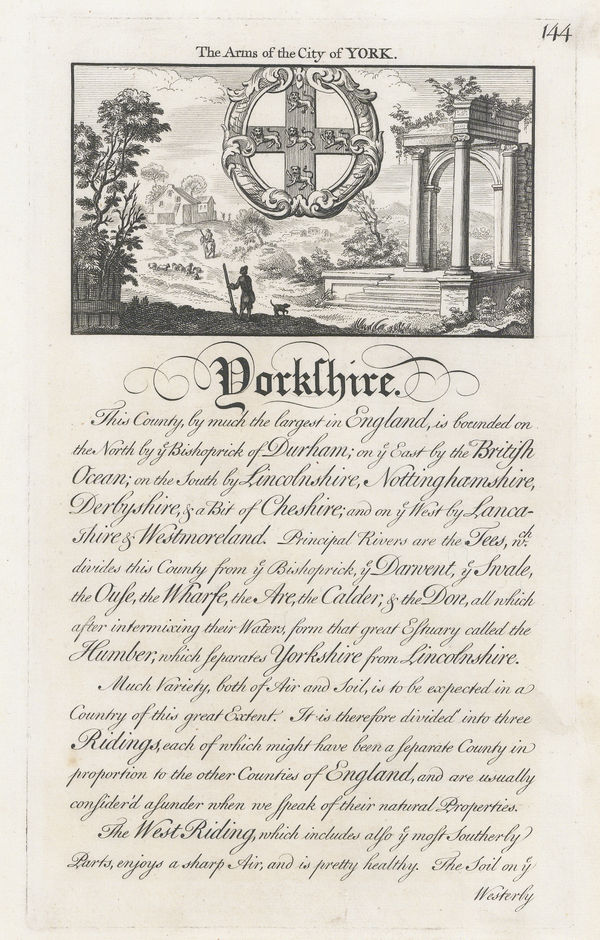 144
The Arms of the City of YORK.
Yorkſhire.
This County, by much the largest in England, is bounded on
the North by yͤ Bishoprick of Durham; on yͤ East by the Britiſh
Ocean; on the South by Lincolnshire, Nottinghamshire,
Derbyshire, & a Bit of Cheshire; and on yͤ West by Lanca-
shire & Westmoreland. Principal Rivers are the Tees, wͨͪ.
divides this County from yͤ Bishoprick, yͤ Darwent, yͤ Swale,
the Ouſe, the Wharfe, the Are, the Calder, & the Don, all which
after intermixing their Waters, form that great Eſtuary called the
Humber, which ſeparates Yorkshire from Lincolnshire.
Much Variety, both of Air and Soil, is to be expected in a
Country of this great Extent. It is therefore divided into three
Ridings, each of which might have been a ſeparate County in
proportion to the other Counties of England, and are usually
conſider'd aſunder when we ſpeak of their natural Properties.
The West Riding, which includes alſo yͤ moſt Southerly
Parts, enjoys a sharp Air, and is pretty healthy. The Soil on yͤ
Westerly